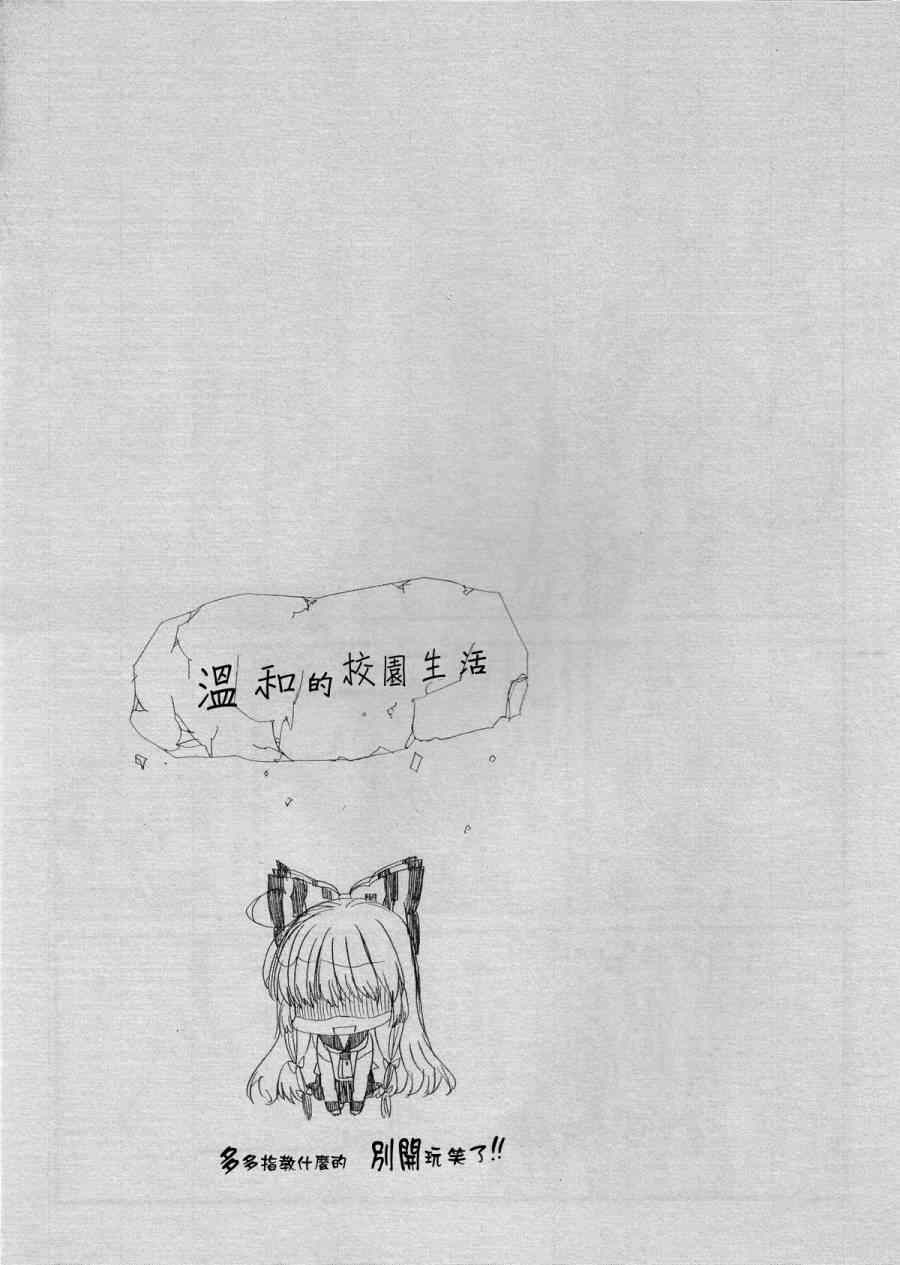 溫和的校園生活
多多指教什麼的 別開玩笑了!!